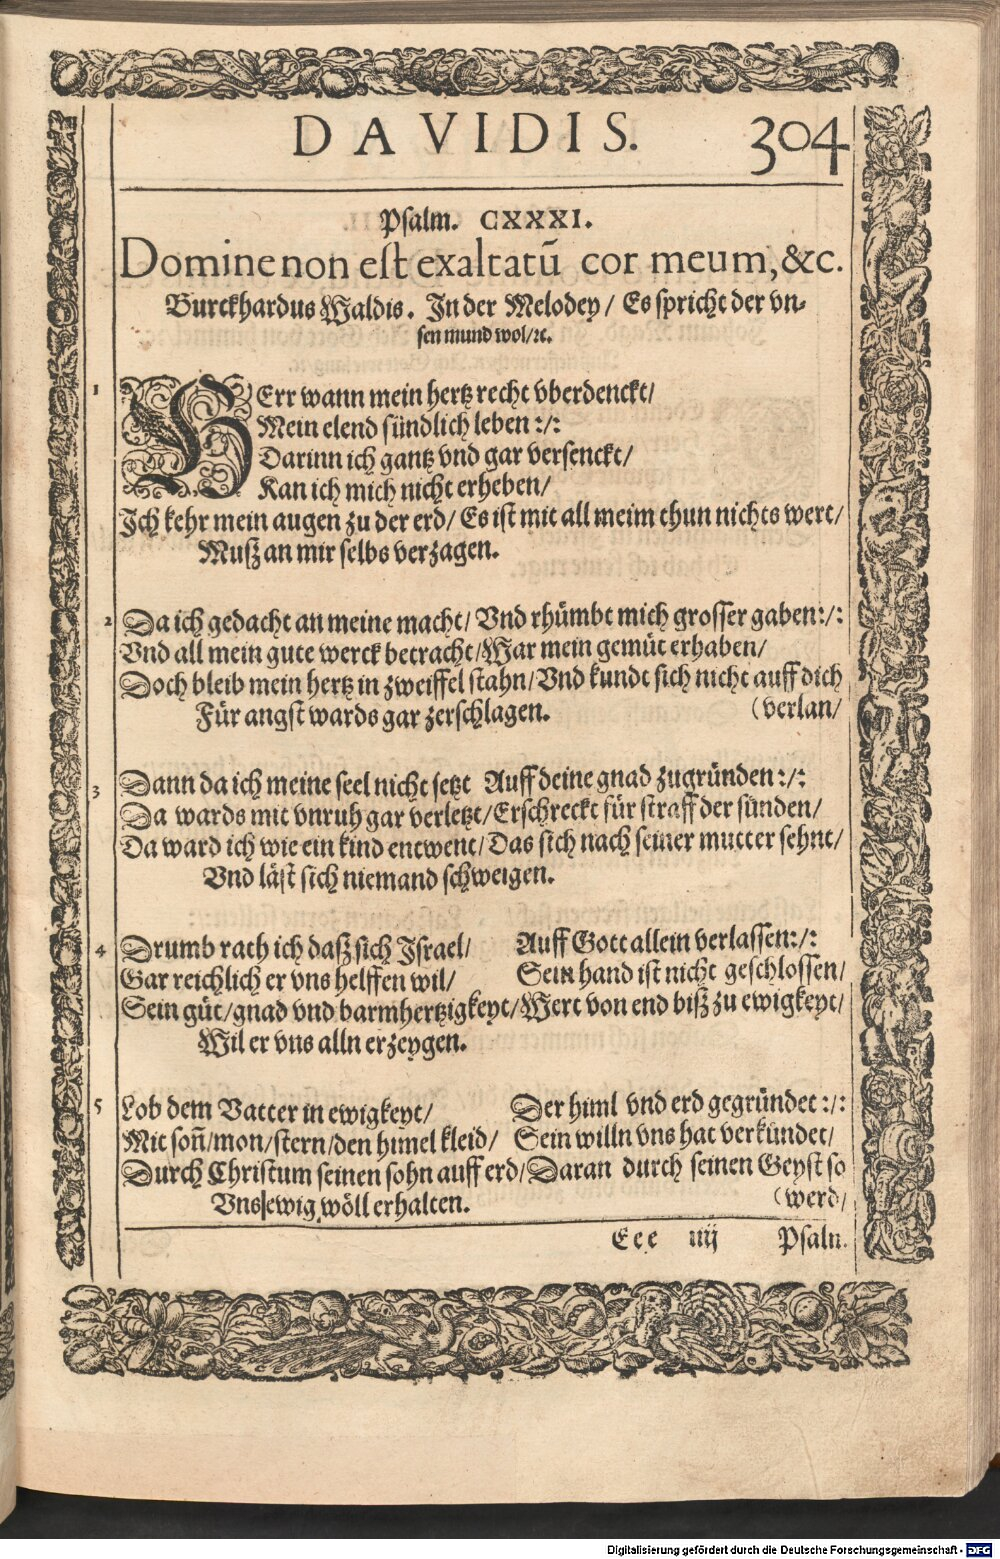 DAVIDIS. 304
Psalm. CXXXI.
Domine non est exaltatū cor meum, &c.
Burckhardus Waldis. In der Melodey/ Es spricht der vn-
sen mund wol/ꝛc.
1 HErr wann mein hertz recht vberdenckt/
Mein elend sündlich leben :/:
Darinn ich gantz vnd gar versenckt/
Kan ich mich nicht erheben/
Ich kehr mein augen zu der erd/ Es ist mit all meim thun nichts wert/
Muß an mir selbs verzagen.
2 Da ich gedacht an meine macht/ Vnd rhümbt mich grosser gaben:/:
Vnd all mein gute werck betracht/ War mein gemüt erhaben/
Doch bleib mein hertz in zweiffel stahn/ Vnd kundt sich nicht auff dich
Für angst wards gar zerschlagen. (verlan/
3 Dann da ich meine seel nicht setzt Auff deine gnad zugründen :/:
Da wards mit vnruh gar verletzt/ Erschreckt für straff der sünden/
Da ward ich wie ein kind entwent/ Das sich nach seiner mutter sehnt/
Vnd läst sich niemand schweigen.
4 Drumb rath ich daß sich Israel/ Auff Gott allein verlassen:/:
Gar reichlich er vns helffen wil/ Sein hand ist nicht geschlossen/
Sein güt/ gnad vnd barmhertzigkeyt/ Wert von end biß zu ewigkeyt/
Wil er vns alln erzeygen.
5 Lob dem Vatter in ewigkeyt/ Der himl vnd erd gegründet :/:
Mit soñ/mon/stern/den himel kleid/ Sein willn vns hat verkündet/
Durch Christum seinen sohn auff erd/ Daran durch seinen Geyst so
Vns ewig wöll erhalten. (werd/
Eee iiij Psalm.
Digitalisierung gefördert durch die Deutsche Forschungsgemeinschaft - DFG